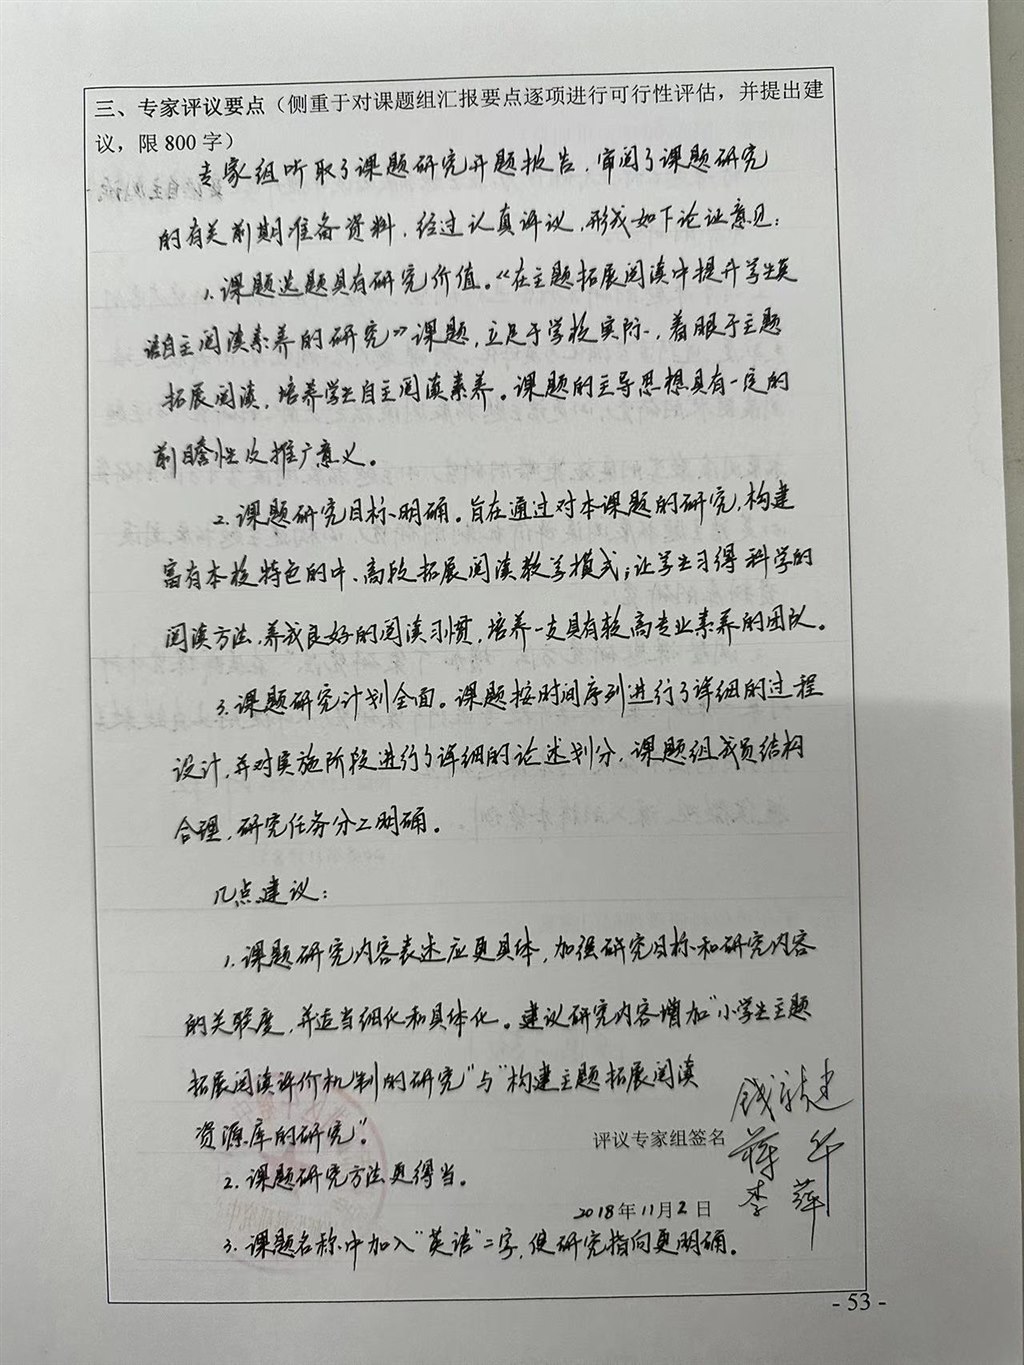 三、专家评议要点（侧重于对课题组汇报要点逐项进行可行性评估，并提出建
议，限 800 字）
专家组听取了课题研究开题报告，审阅了课题研究
的有关前期准备资料，经过认真评议，形成如下论证意见：
1、课题选题具有研究价值。《在主题拓展阅读中提升学生英
语自主阅读素养的研究》课题，立足于学校实际，着眼于主题
拓展阅读，培养学生自主阅读素养。课题的主导思想具有一定的
前瞻性及推广意义。
2、课题研究目标明确。旨在通过对本课题的研究，构建
富有本校特色的中、高段拓展阅读教学模式；让学生习得科学的
阅读方法，养成良好的阅读习惯，培养一支具有较高专业素养的团队。
3、课题研究计划全面。课题按时间序列进行了详细的过程
设计，并对实施阶段进行了详细的论述划分，课题组成员结构
合理，研究任务分工明确。
几点建议：
1、课题研究内容表述应更具体，加强研究目标和研究内容
的关联度，并适当细化和具体化。建议研究内容增加“小学生主题
拓展阅读评价机制的研究”与“构建主题拓展阅读
资源库的研究”。
评议专家组签名
蒋华
李萍
2、课题研究方法更得当。
2018年11月2日
3、课题名称中加入“英语”二字，使研究指向更明确。
- 53 -